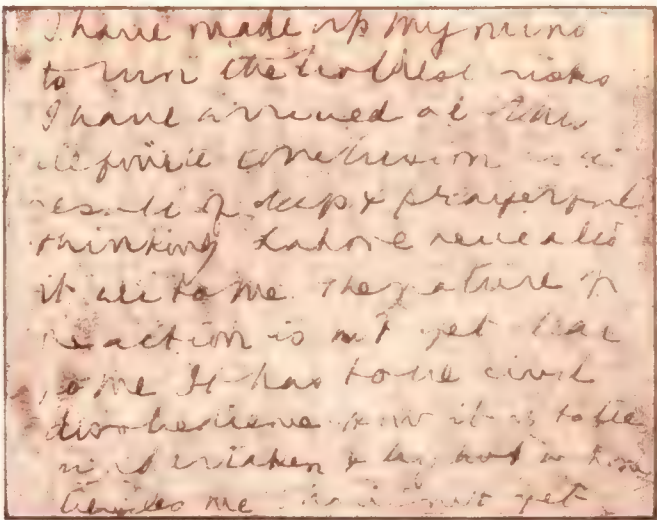 I have made up my mind
to run the boldest risks
I have arrived at this
definite conclusion as a
result of deep & prayerful
thinking Lahore revealed
it all to me. The nature of
the action is not yet clear
to me It has to be civil
disobedience How it is to be
undertaken & by
besides me I not yet